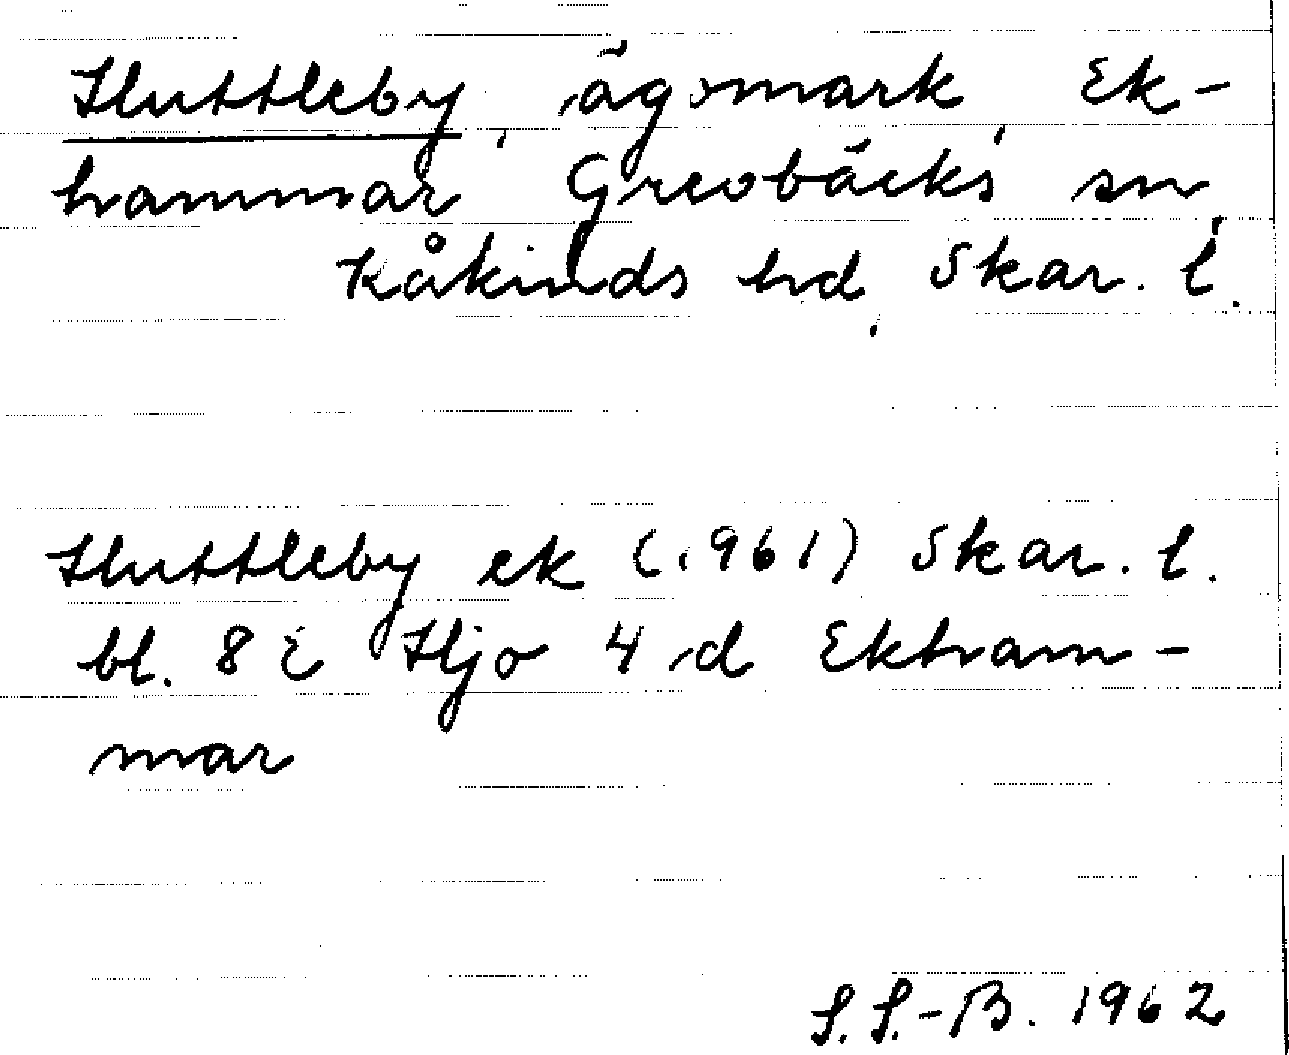 Huttleby, ägomark, Ek-
hammar, Grevbäcks sn,
Kåkinds hd, Skar. l.
Huttleby ek (1961) Skar. l.
bl. 8 E Hjo 4 d Ekham-
mar
S. S.-B. 1962